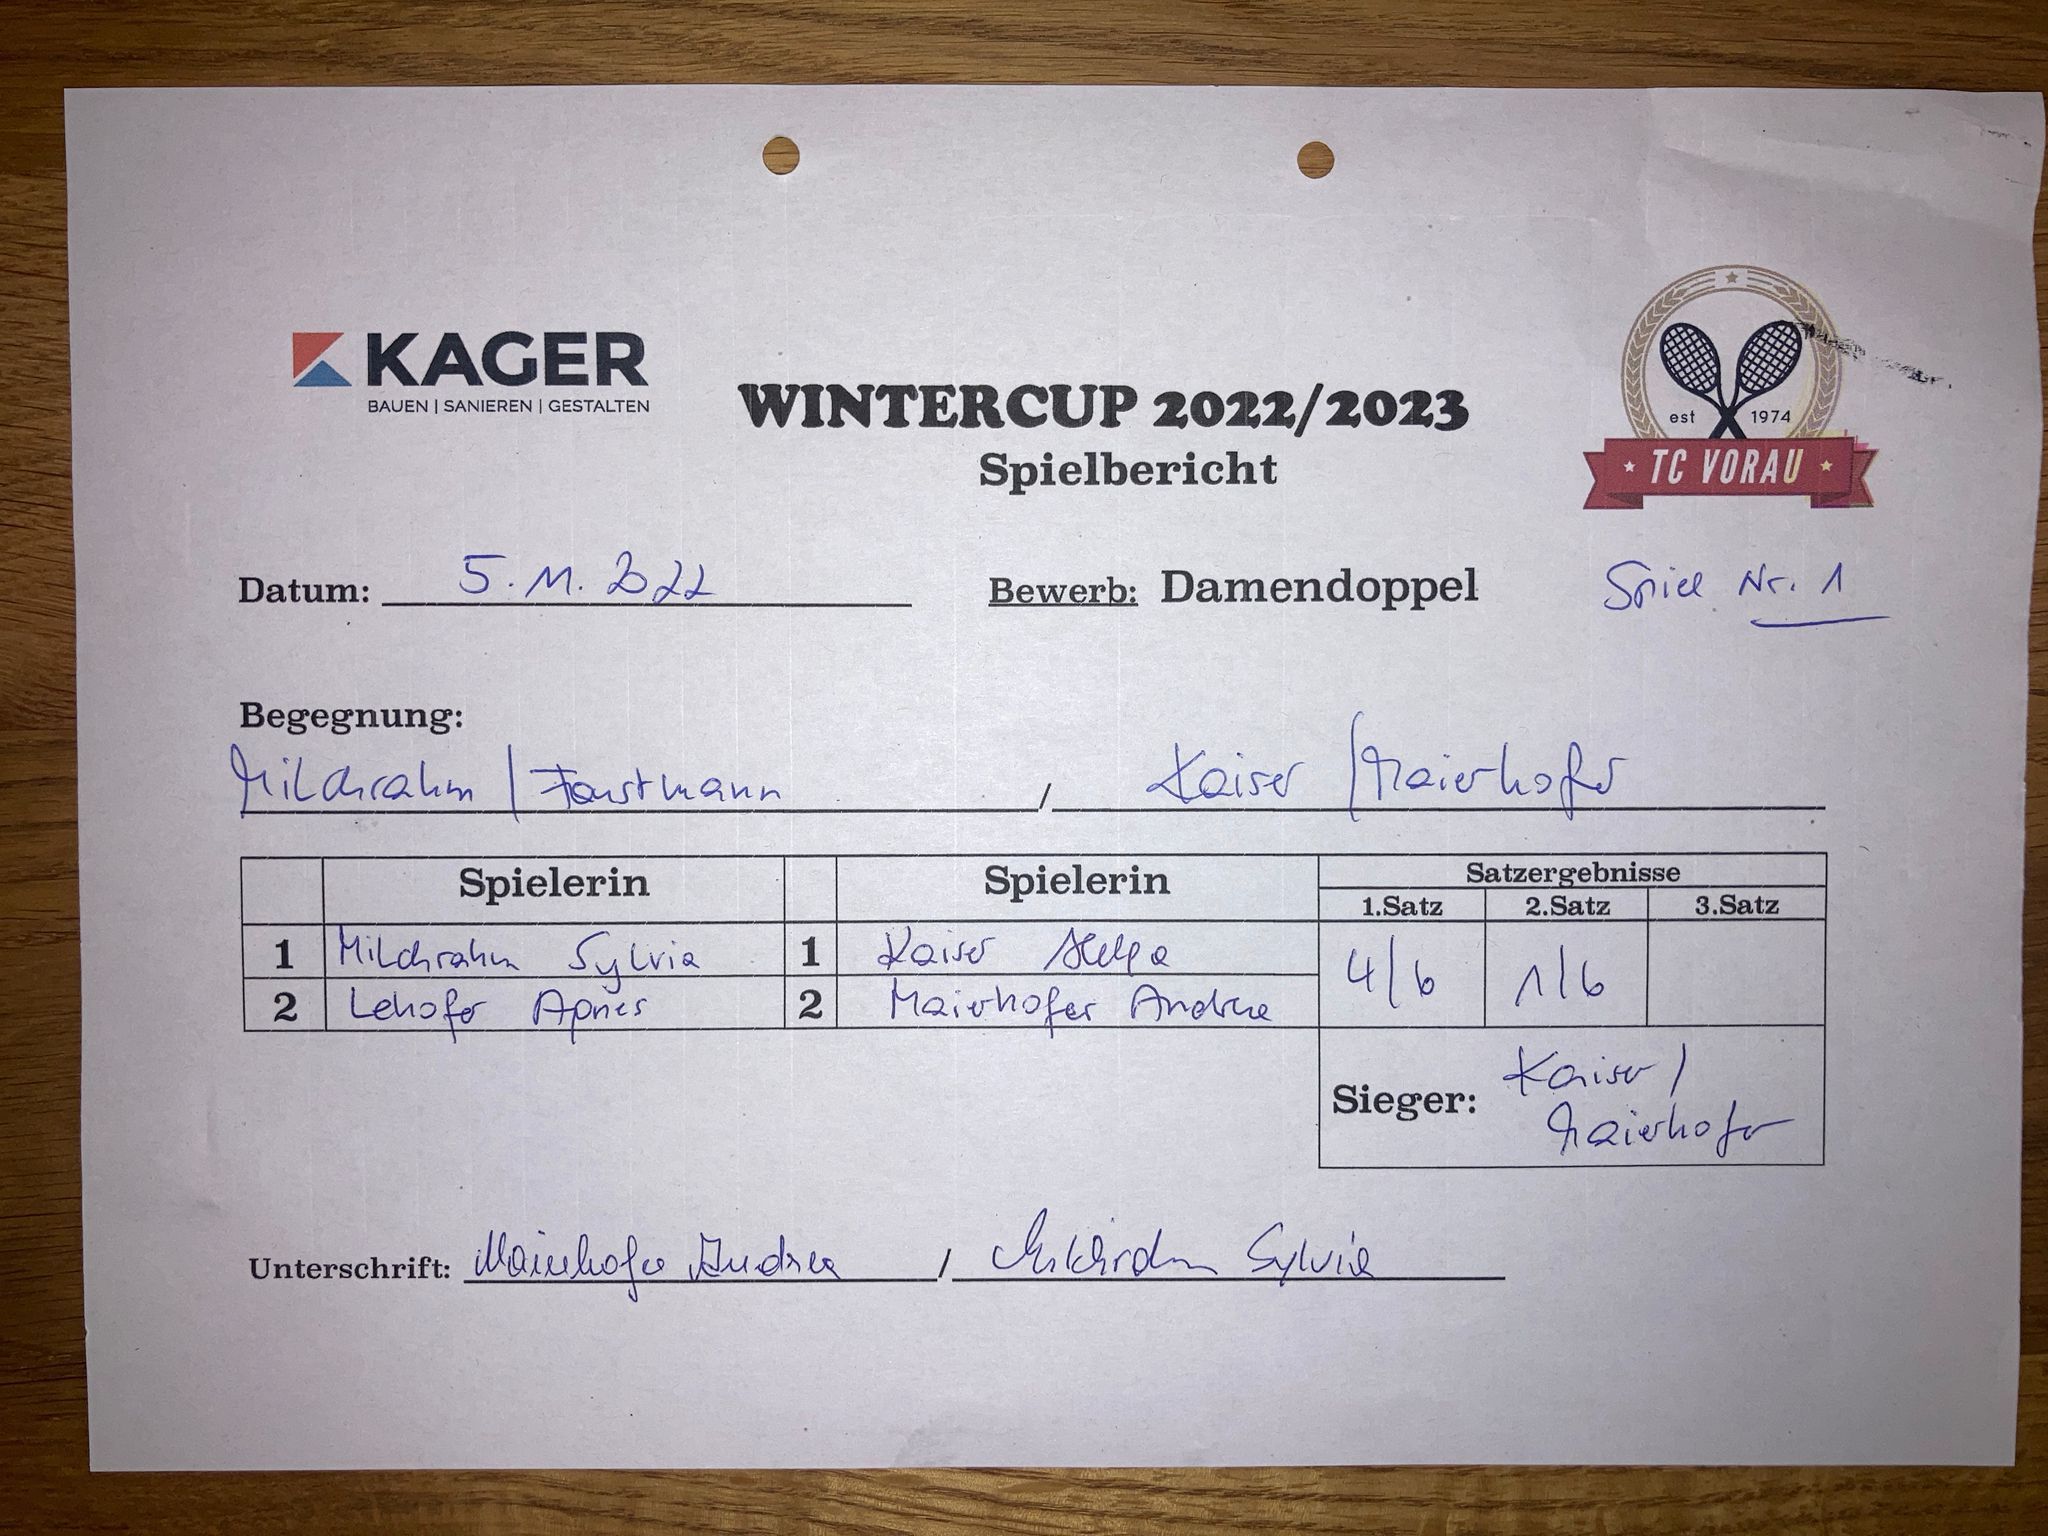 KAGER
BAUEN | SANIEREN | GESTALTEN
WINTERCUP 2022/2023
Spielbericht
est 1974
TC VORAU
Datum: 5.11.2022
Bewerb: Damendoppel
Spiel Nr. 1
Begegnung:
Milchrahm / Forstmann / Kaiser / Maierhofer
Spielerin Spielerin Satzergebnisse
1.Satz 2.Satz 3.Satz
1 Milchrahm Sylvia 1 Kaiser Helga
4/6 1/6
2 Lehofer Agnes 2 Maierhofer Andrea
Sieger: Kaiser /
Maierhofer
Unterschrift: Maierhofer Andrea / Milchrahm Sylvia